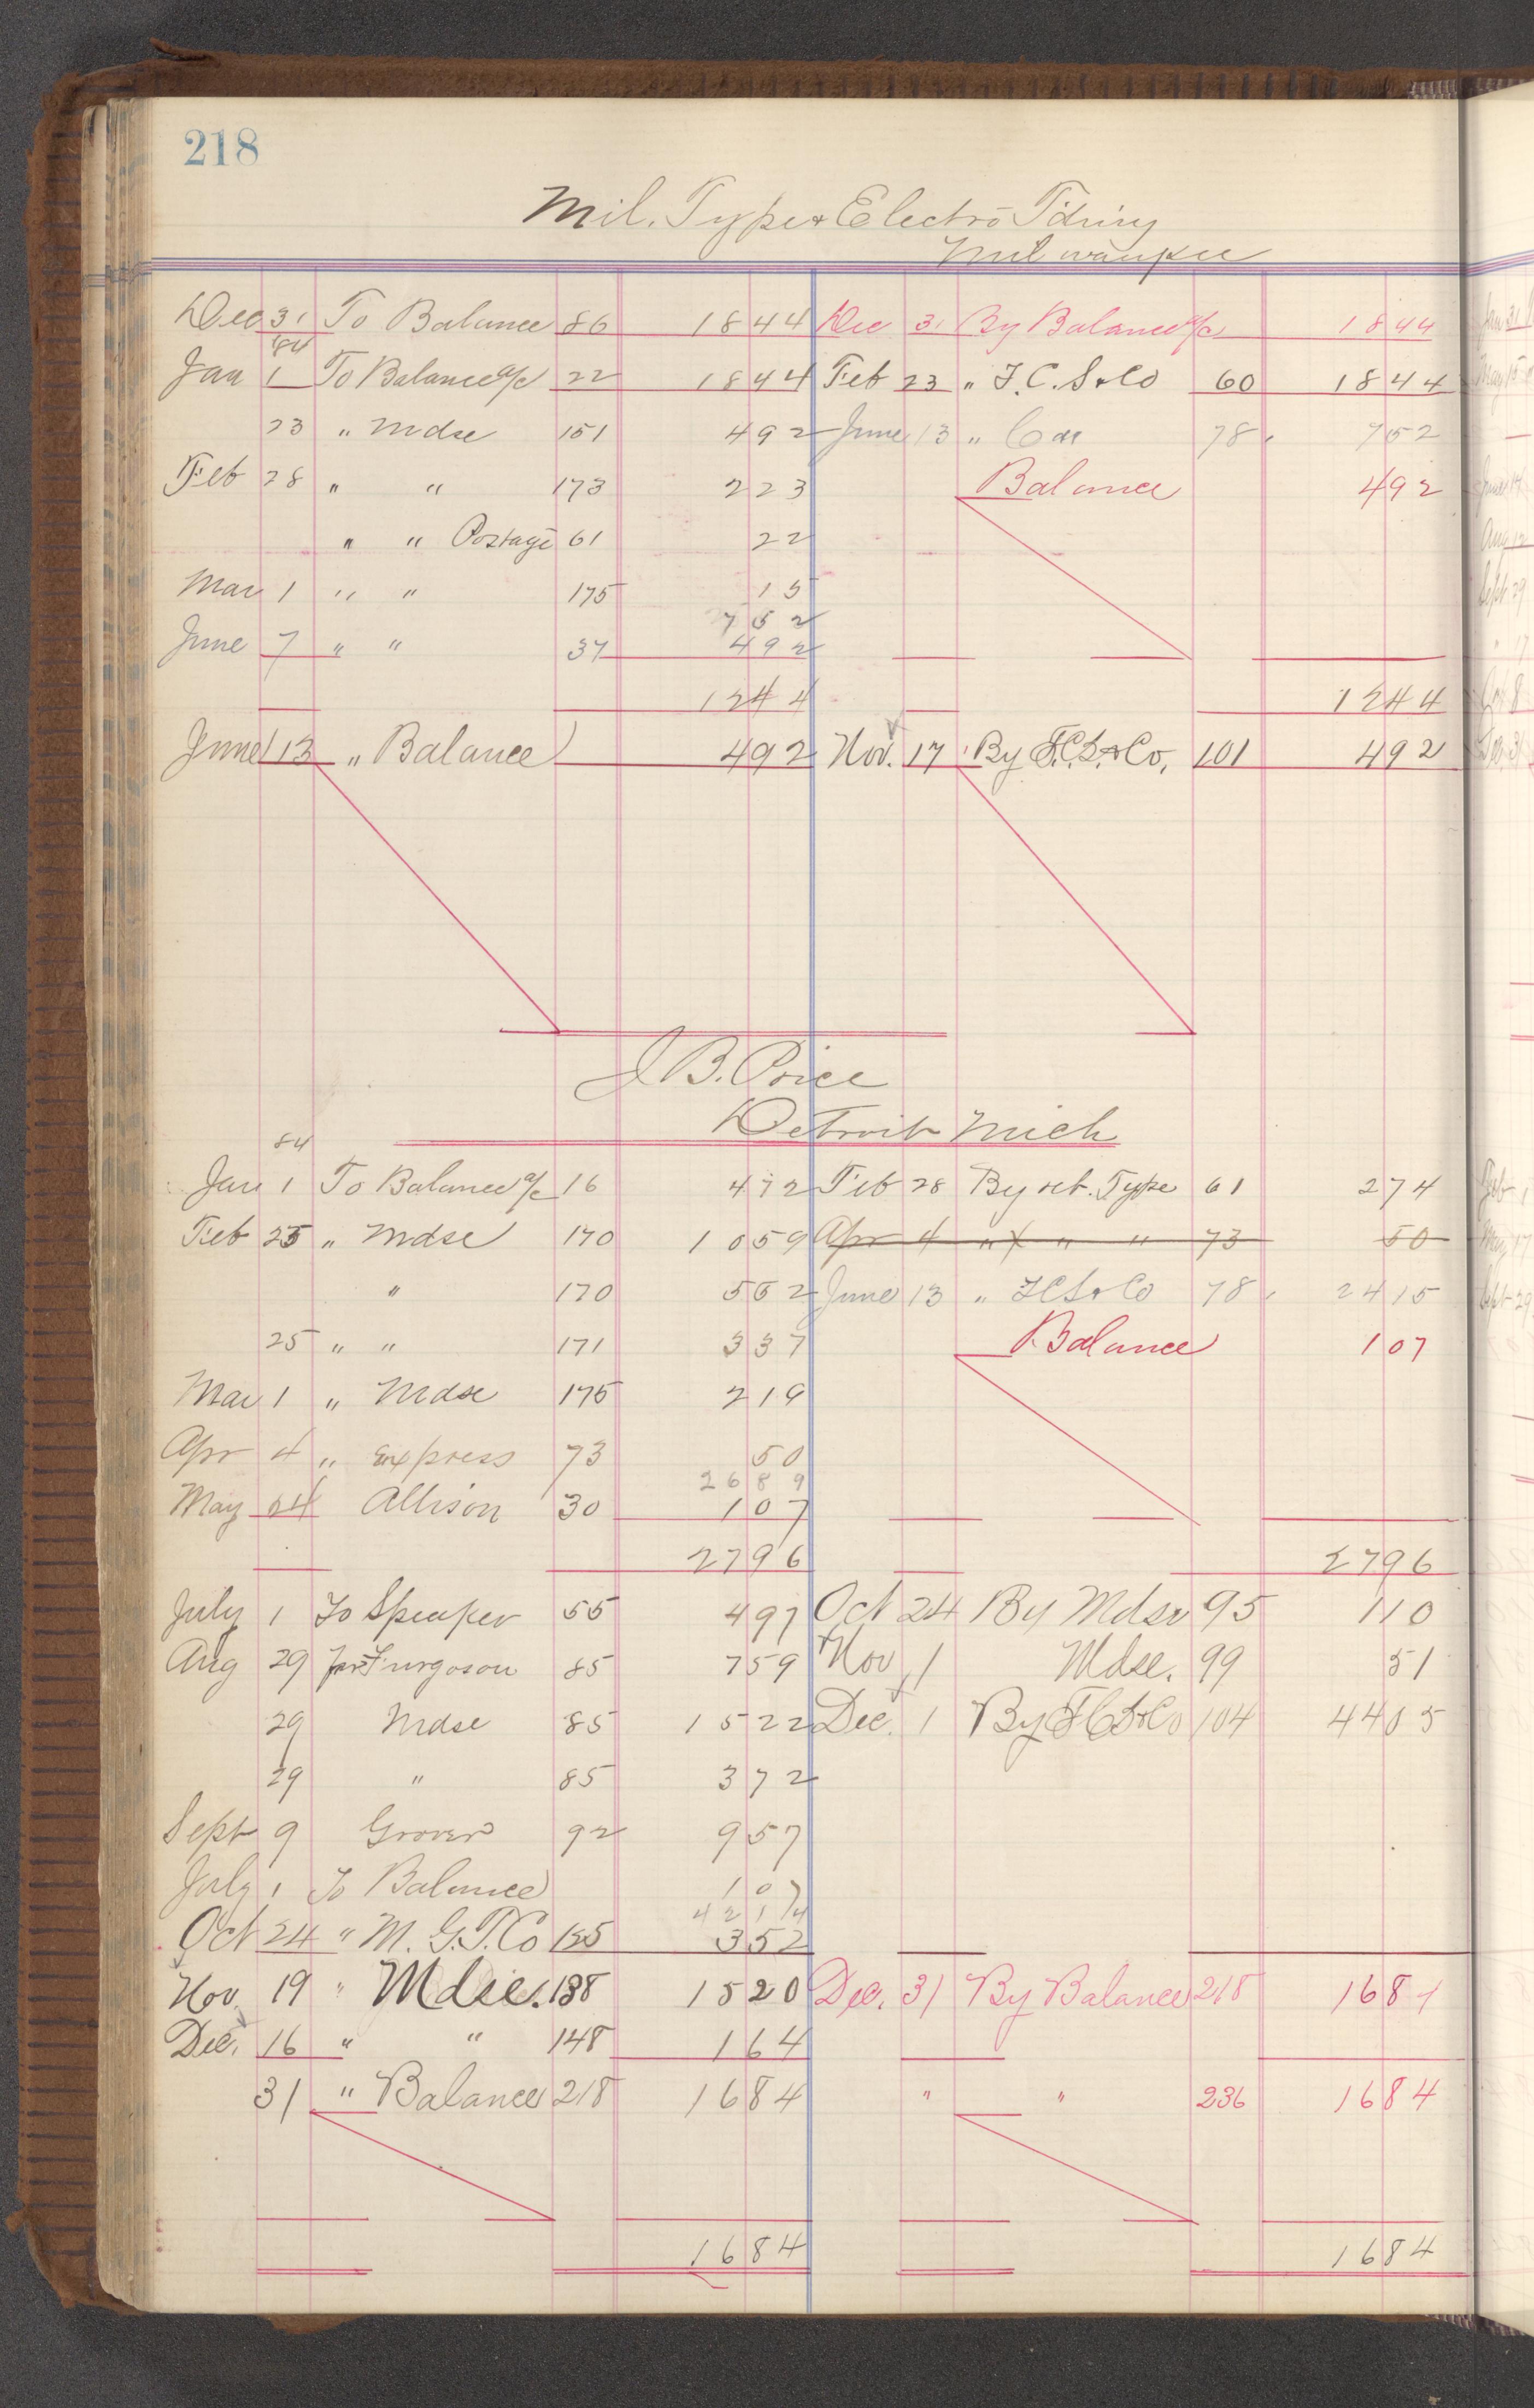 218
Mil. Type & Electro
Milwaukee
Dec 31 To Balance 86 1844 Dec 31 By Balance a/c 1844
84
Jan 1 To Balance a/c 22 1844 Feb 23 " F.C.S. & Co 60 1844
23 " Mdse 151 492 June 13 " 78 752
Feb 28 " " 173 223 Balance 492
" " Postage 61 22
Mar 1 " " 175 15
752
June 7 " " 37 492
1244 1244
June 13 " Balance 492 Nov. 17 By F.C.S. & Co. 101 492
J B. Price
Detroit Mich
84
Jan 1 To Balance a/c 16 412 Feb 28 By ret. Type 61 274
Feb 25 " Mdse 170 1059 Apr 4 " " " 73 50
" 170 562 June 13 " F.C.S. & Co 78 2415
25 " " 171 337 Balance 107
Mar 1 " Mdse 175 219
Apr 4 " Express 73 50
2689
May 24 Allison 30 107
2796 2796
July 1 To Speaker 55 497 Oct 24 By Mdse 95 110
Aug 29 Furgoson 85 759 Nov 1 Mdse. 99 51
29 Mdse 85 1522 Dec. 1 By F.C.S. & Co 104 4405
29 " 85 372
Sept 9 Grover 92 957
July 1 To Balance 107
4214
Oct 24 " M. G. T. Co 125 352
Nov. 19 " Mdse. 138 1520 Dec. 31 By Balance 218 1684
Dec. 16 " " 148 164
31 " Balance 218 1684 " " 236 1684
1684 1684